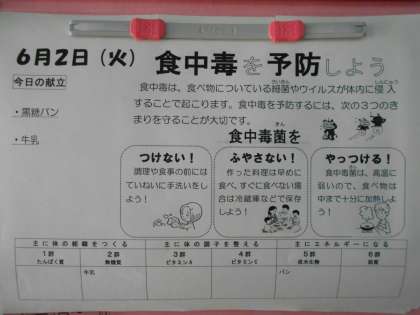 6月2日（火） 食中毒を予防しよう
今日の献立
・黒糖パン
・牛乳
食中毒は、食べ物についている細菌やウイルスが体内に侵入
することで起こります。食中毒を予防するには、次の３つのき
まりを守ることが大切です。
食中毒菌を
つけない！
調理や食事の前には
ていねいに手洗いをし
よう！
ふやさない！
作った料理は早めに
食べ、すぐに食べない場
合は冷蔵庫などで保存
しよう！
やっつける！
食中毒菌は、高温に
弱いので、食べ物は
中まで十分に加熱しよ
う！
主に体の組織をつくる 主に体の調子を整える 主にエネルギーになる
1群 2群 3群 4群 5群 6群
たんぱく質 無機質 ビタミンA ビタミンC 炭水化物 脂質
牛乳 パン